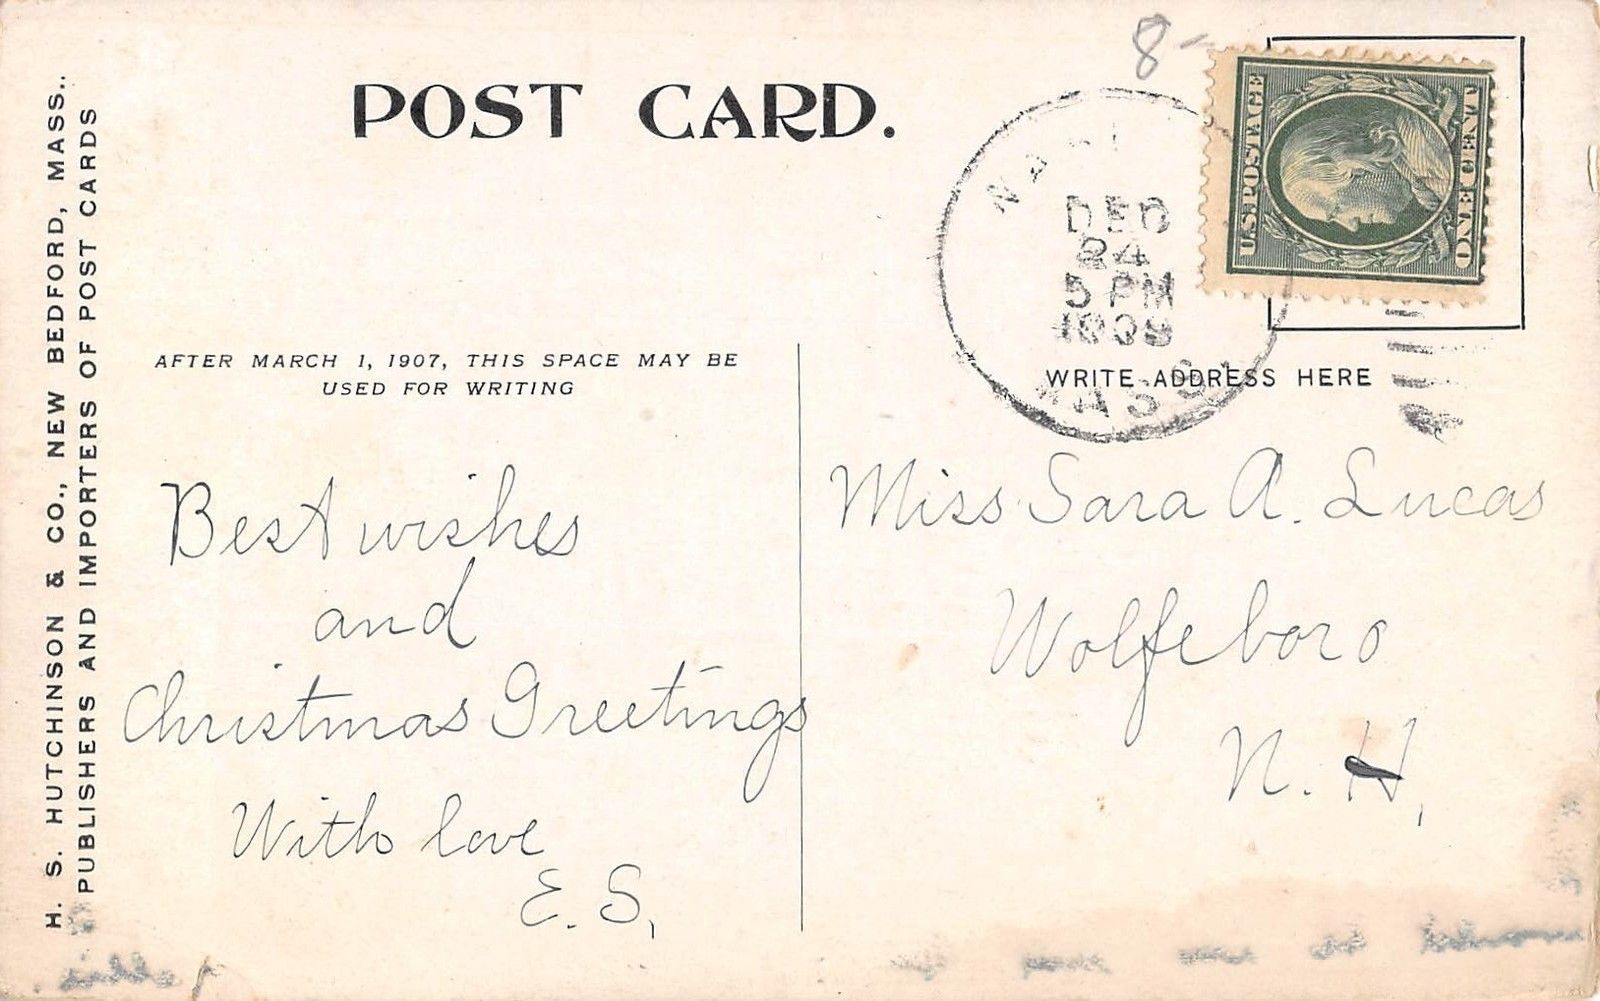 8-
POST CARD.
H. S. HUTCHINSON & CO., NEW BEDFORD, MASS..
PUBLISHERS AND IMPORTERS OF POST CARDS
AFTER MARCH 1, 1907, THIS SPACE MAY BE
USED FOR WRITING
Best wishes
and
Christmas Greetings
With love
E. S.
U.S. POSTAGE
ONE CENT
DEC
24
5 PM
MASS
WRITE ADDRESS HERE
Miss Sara A. Lucas
Wolfeboro
N. H.